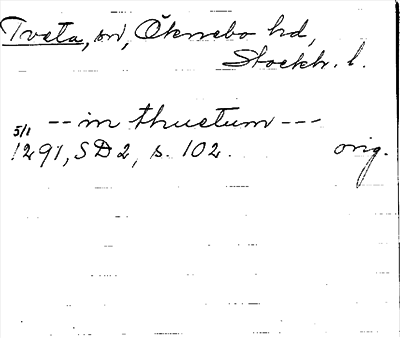 Tveta, sn, Öknebo hd,
Stockh. l.
-- in thuetum ---
5/1
1291, SD 2, s. 102. orig.